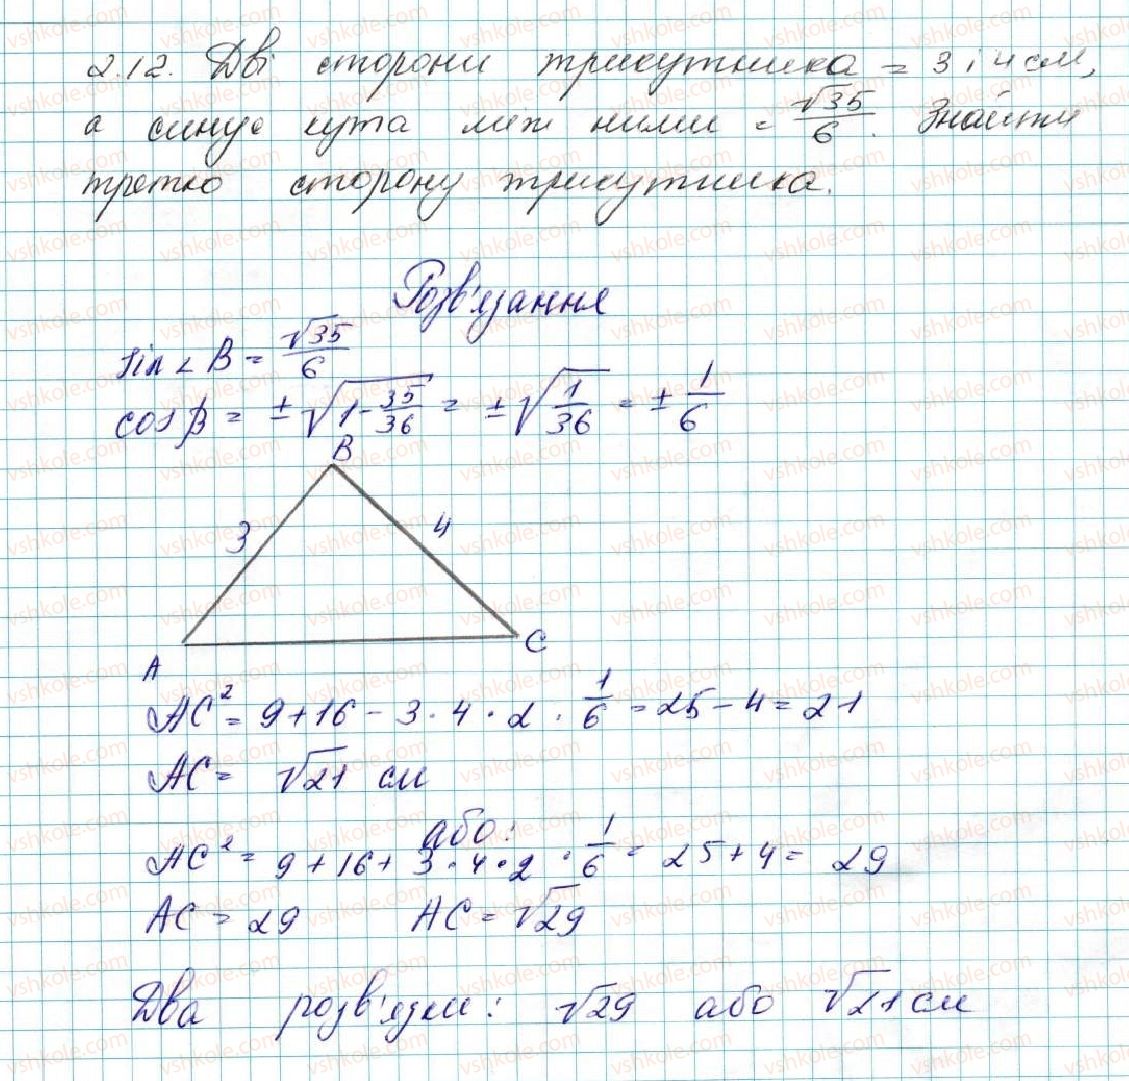 2.12. Дві сторони трикутника = 3 і 4 см,
а синус кута між ними = √35/6. Знайти
третю сторону трикутника.
Розв'язання
sin∠B = √35/6
cosβ = ±√(1-35/36) = ±√(1/36) = ±1/6
B
3
4
A
C
AC² = 9+16 - 3·4·2·1/6 = 25-4 = 21
AC = √21 см
або:
AC² = 9+16+3·4·2·1/6 = 25+4 = 29
AC = 29 AC = √29
Два розв'язки: √29 або √21 см
vshkole.com